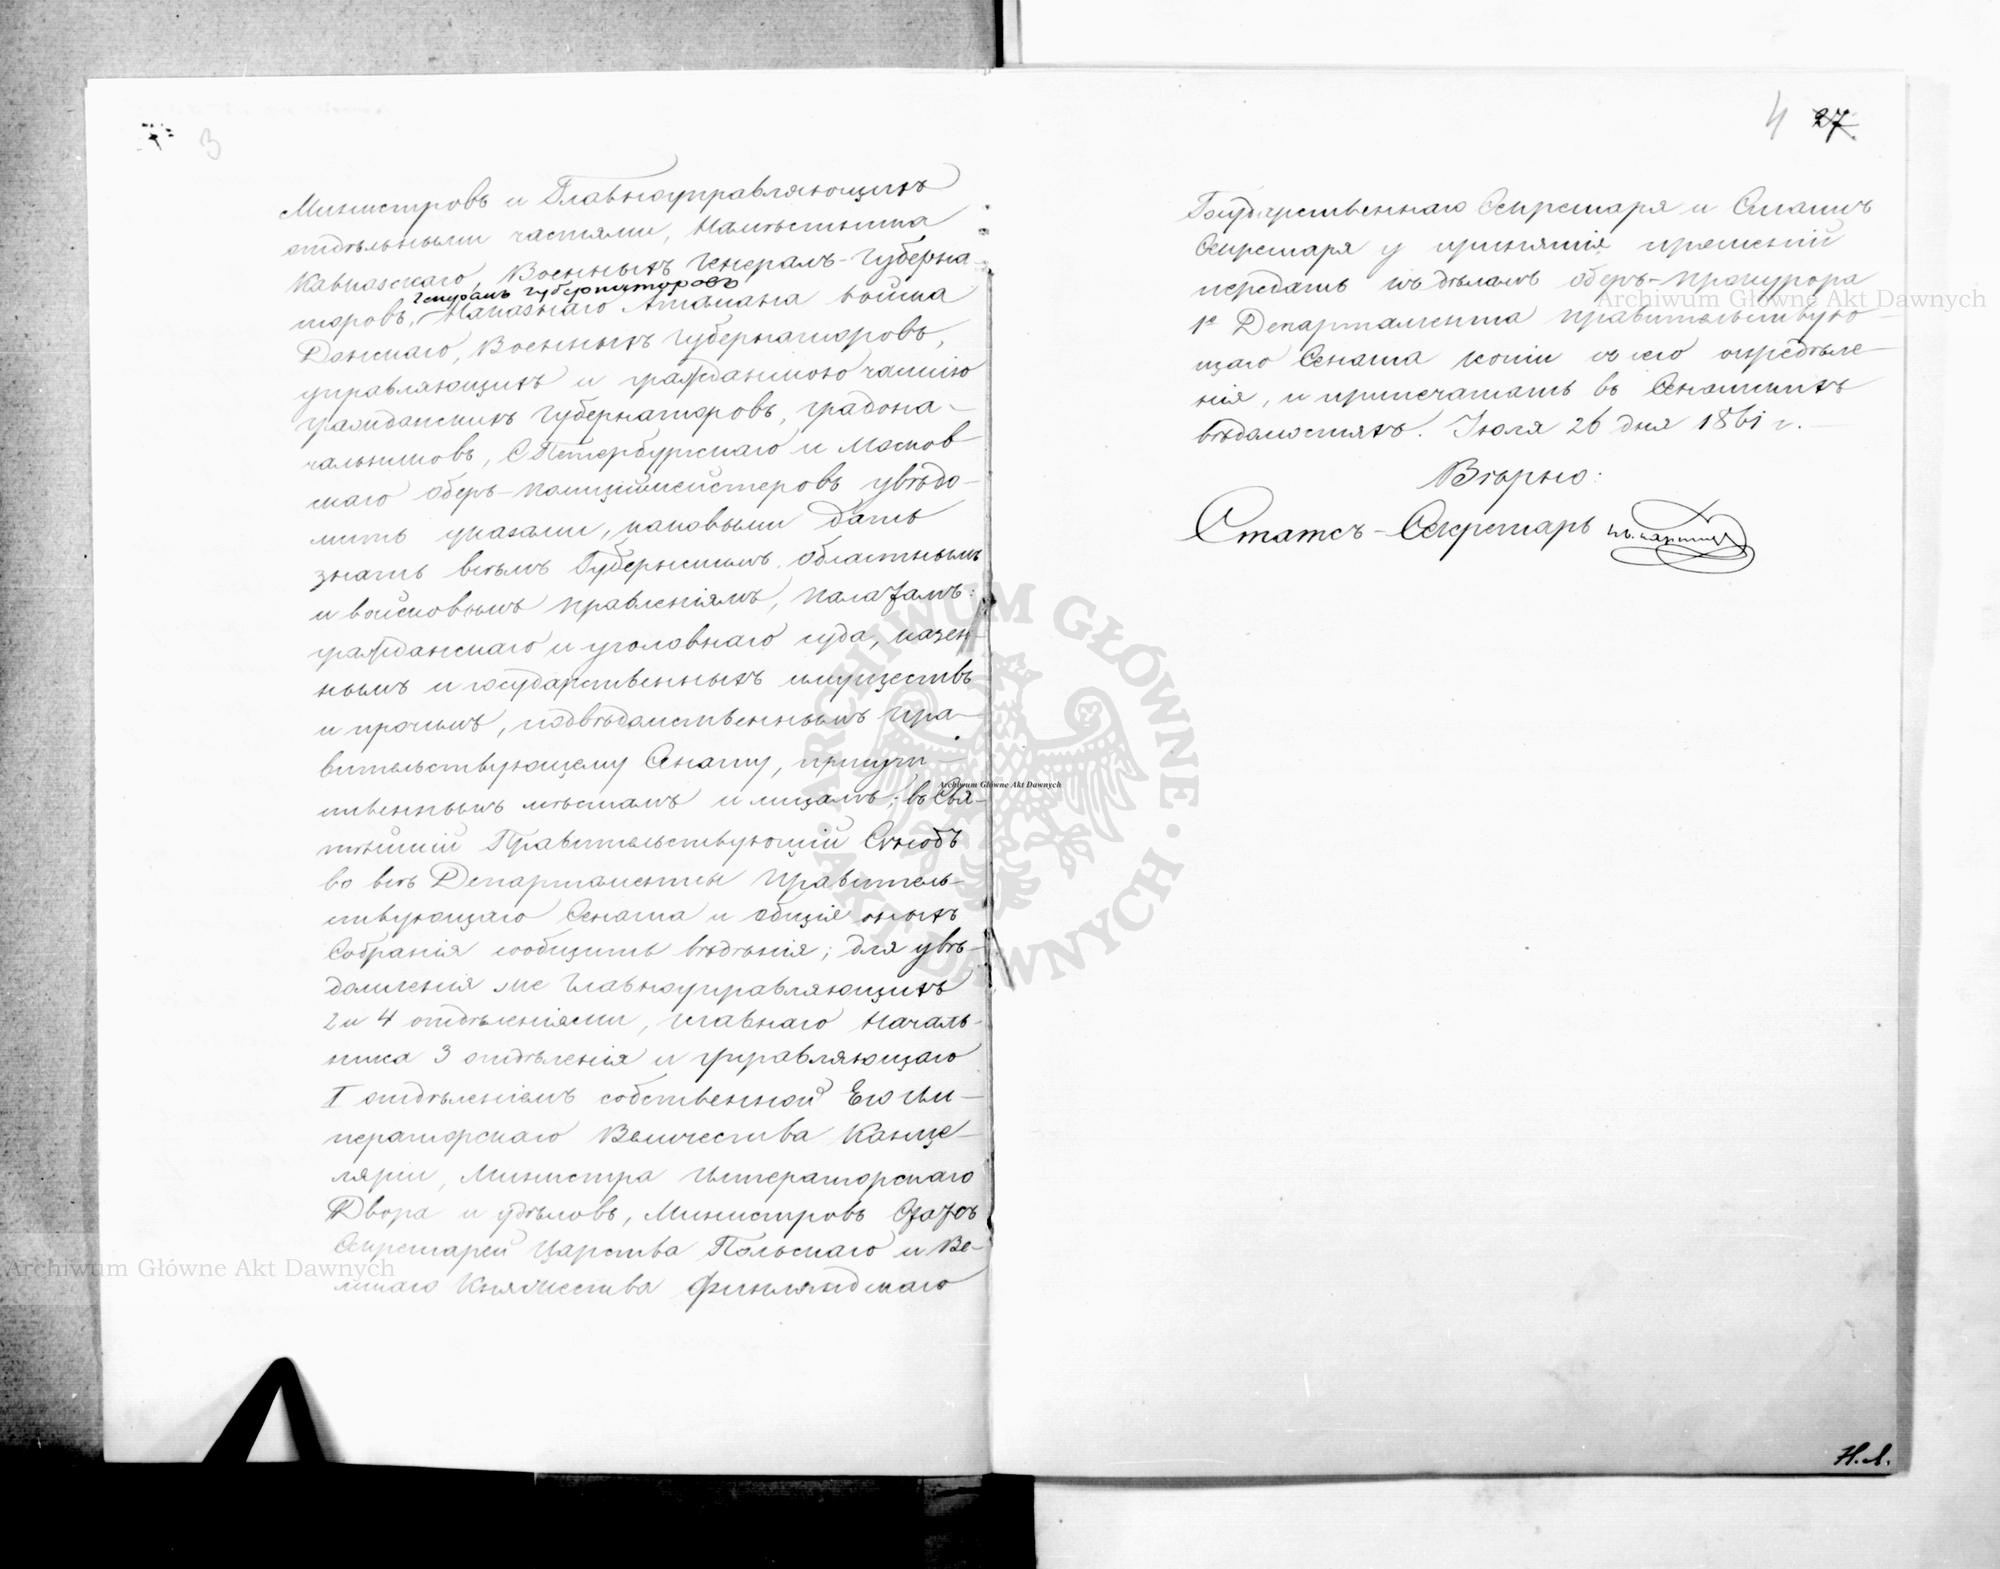 3
Министровъ и Главноуправляющихъ
отдѣльными частями, Намѣстника
Кавказскаго, Военныхъ Генералъ-Губерна-
Генералъ Губернаторовъ
торовъ, Наказнаго Атамана войска
Донскаго, Военныхъ Губернаторовъ,
управляющихъ и гражданскою частію
Гражданскихъ Губернаторовъ, градона-
чальниковъ, С Петербургскаго и Москов-
скаго Оберъ-полицiймейстеровъ увѣдо-
мить указами, каковыми дать
знать всѣмъ Губернскимъ, Областнымъ
и войсковымъ правленіямъ, палатамъ:
гражданскаго и уголовнаго суда, казен-
нымъ и государственныхъ имуществъ
и прочимъ, подвѣдомственнымъ Пра-
вительствующему Сенату, присут-
ственнымъ мѣстамъ и лицамъ; въ Свя-
тѣйшій Правительствующій Сѵнодъ
во всѣ Департаменты Правитель-
ствующаго Сената и общія оныхъ
Собранія сообщить вѣдѣнія; для увѣ-
домленія же Главноуправляющихъ
2 и 4 отдѣленіями, главнаго Началь-
ника 3 отдѣленія и управляющаго
I отдѣленіемъ собственной Его Им-
ператорскаго Величества Канце-
ляріи, Министра Императорскаго
Двора и удѣловъ, Министровъ Статсъ
Секретарей Царства Польскаго и Ве-
ликаго Княжества Финляндскаго
4 27
Государственнаго Секретаря и Статсъ
Секретаря у принятія прошеній
передать къ дѣламъ Оберъ-Прокурора
1го Департамента Правительствую-
щаго Сената копіи съ сего опредѣле-
нія, и припечатать въ Сенатскихъ
вѣдомостяхъ. Іюля 26 дня 1861 г.
Вѣрно:
Статсъ-Секретарь
Н.Л.
Archiwum Główne Akt Dawnych
Archiwum Główne Akt Dawnych
Archiwum Główne Akt Dawnych
ARCHIWUM GŁÓWNE
AKT DAWNYCH